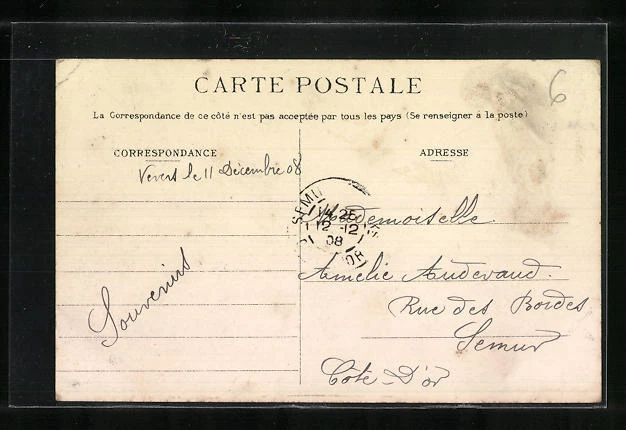 CARTE POSTALE
La Correspondance de ce côté n'est pas acceptée par tous les pays (Se renseigner à la poste)
CORRESPONDANCE
le 11 Décembre 08
Souvenirs
ADRESSE
6
SEMUR
14 25
12 -12
08
Mademoiselle
Amélie Audevaud.
Rue des Bordes
Semur
Côte-D'or